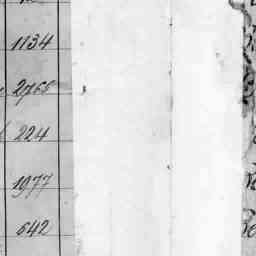 1134
2765
224
1977
642